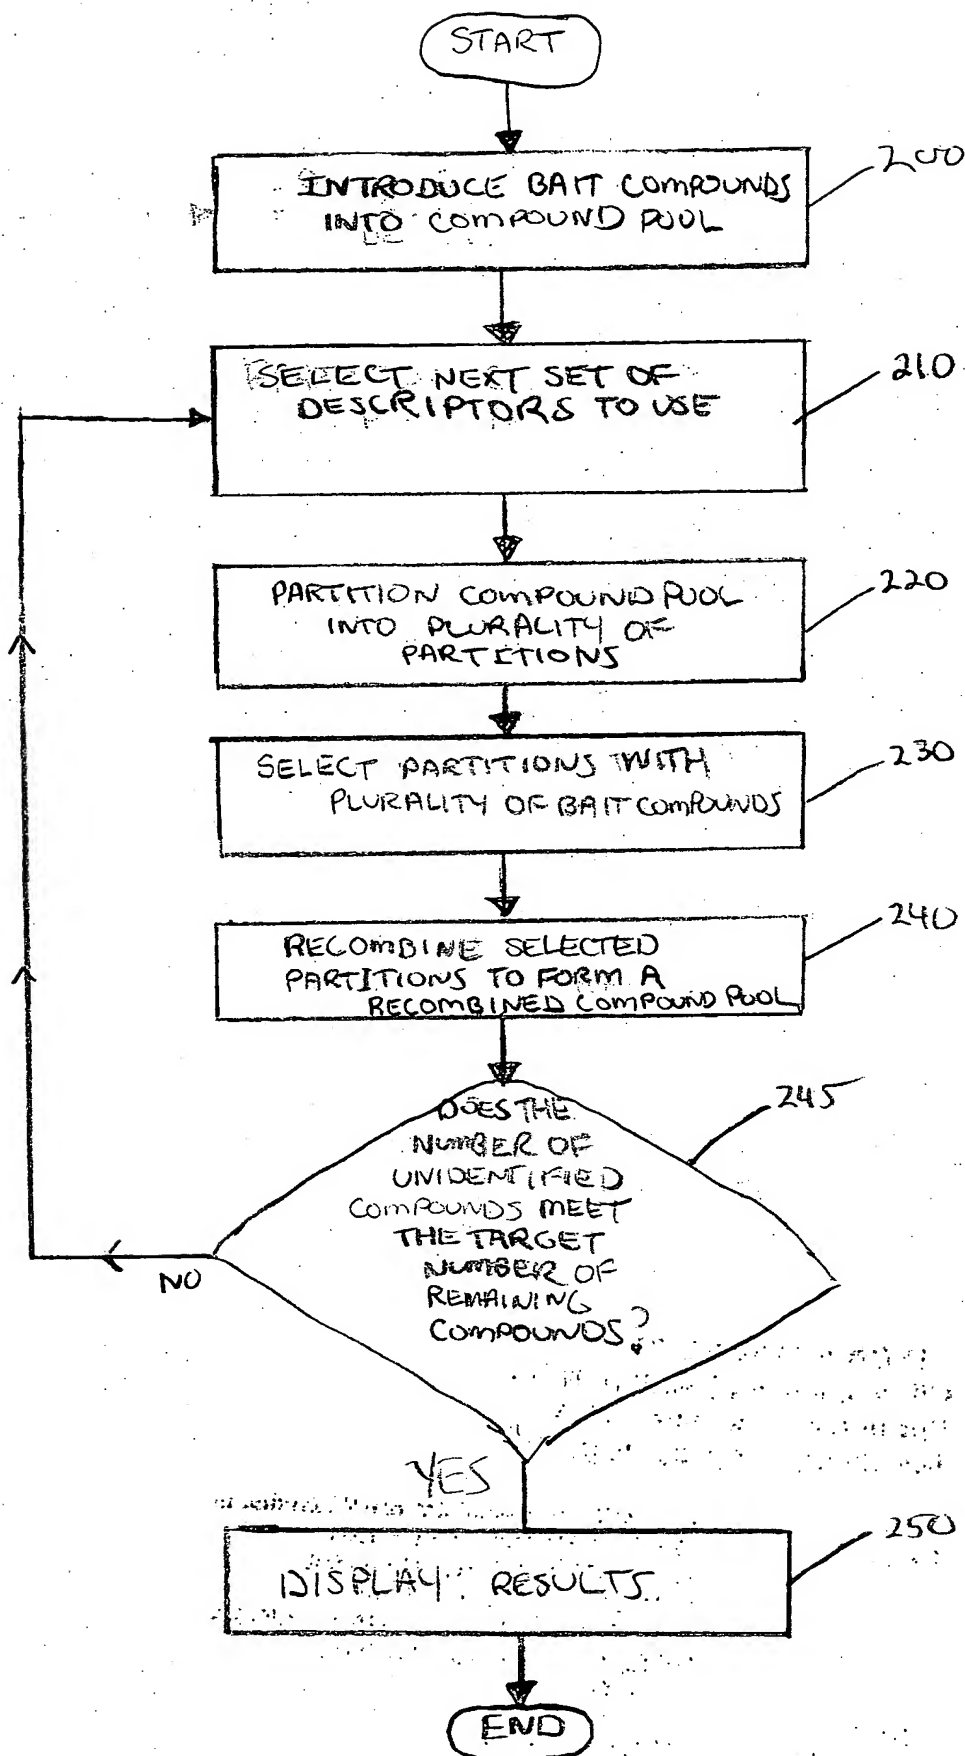 START
INTRODUCE BAIT COMPOUNDS
INTO COMPOUND POOL
200
SELECT NEXT SET OF
DESCRIPTORS TO USE
210
PARTITION COMPOUND POOL
INTO PLURALITY OF
PARTITIONS
220
SELECT PARTITIONS WITH
PLURALITY OF BAIT COMPOUNDS
230
RECOMBINE SELECTED
PARTITIONS TO FORM A
RECOMBINED COMPOUND POOL
240
DOES THE
NUMBER OF
UNIDENTIFIED
COMPOUNDS MEET
THE TARGET
NUMBER OF
REMAINING
COMPOUNDS?
245
NO
YES
DISPLAY RESULTS
250
END